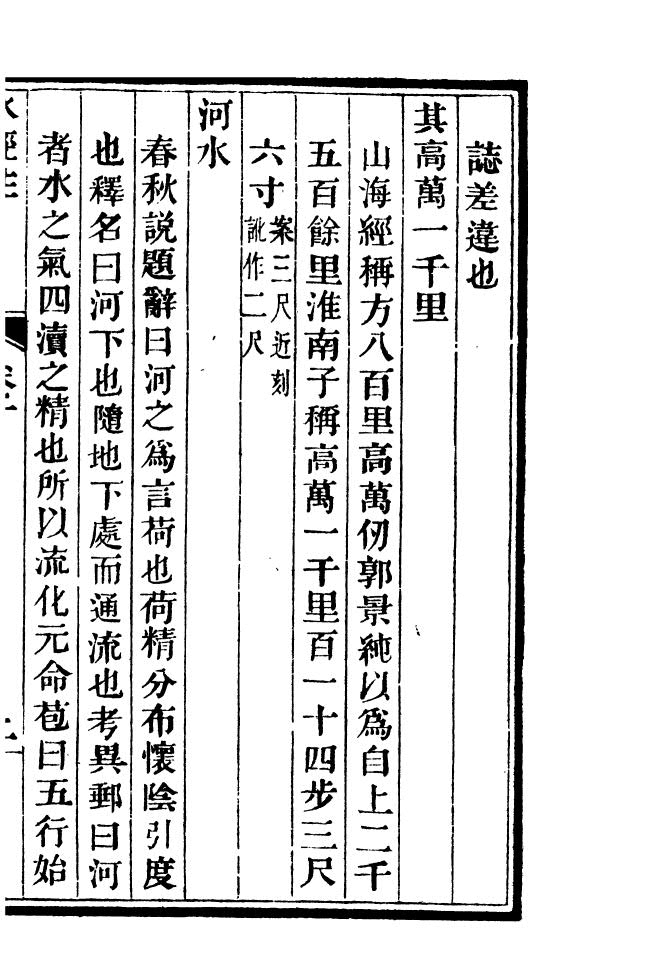 誌差違也
其高萬一千里
山海經稱方八百里高萬仞郭景純以爲自上二千
五百餘里淮南子稱高萬一千里百一十四步三尺
六寸案三尺近刻
訛作二尺
河水
春秋説題辭曰河之爲言荷也荷精分布懷陰引度
也釋名曰河下也隨地下處而通流也考異郵曰河
者水之氣四瀆之精也所以流化元命苞曰五行始
水經注